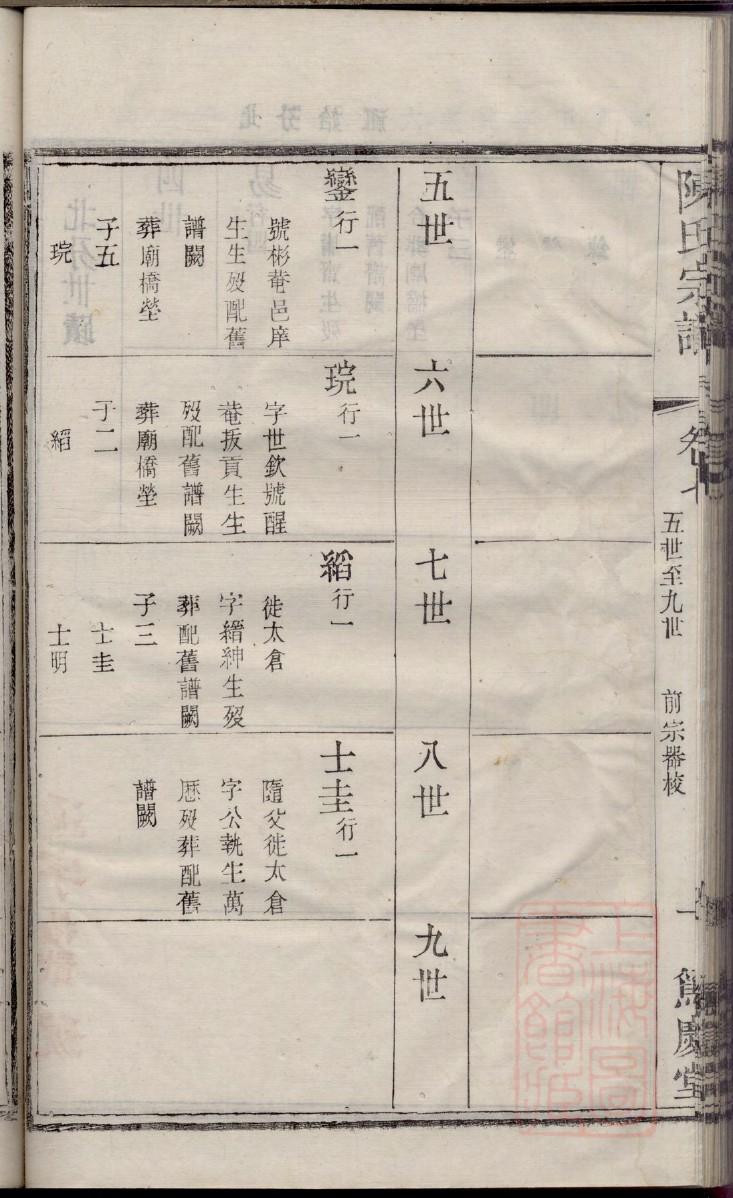 陳氏宗譜
卷七
五世至九世
前宗器校
一
篤慶堂
五世
六世
七世
八世
九世
鑾行一
號彬菴邑庠
生生歿配舊
譜闕
葬廟橋塋
子五
琓
琓行一
字世欽號醒
菴拔貢生生
歿配舊譜闕
葬廟橋塋
子二
縚
縚行一
徙太倉
字縉紳生歿
葬配舊譜闕
子三
士圭
士明
士圭行一
隨父徙太倉
字公執生萬
厯歿葬配舊
譜闕
上海圖
書館藏